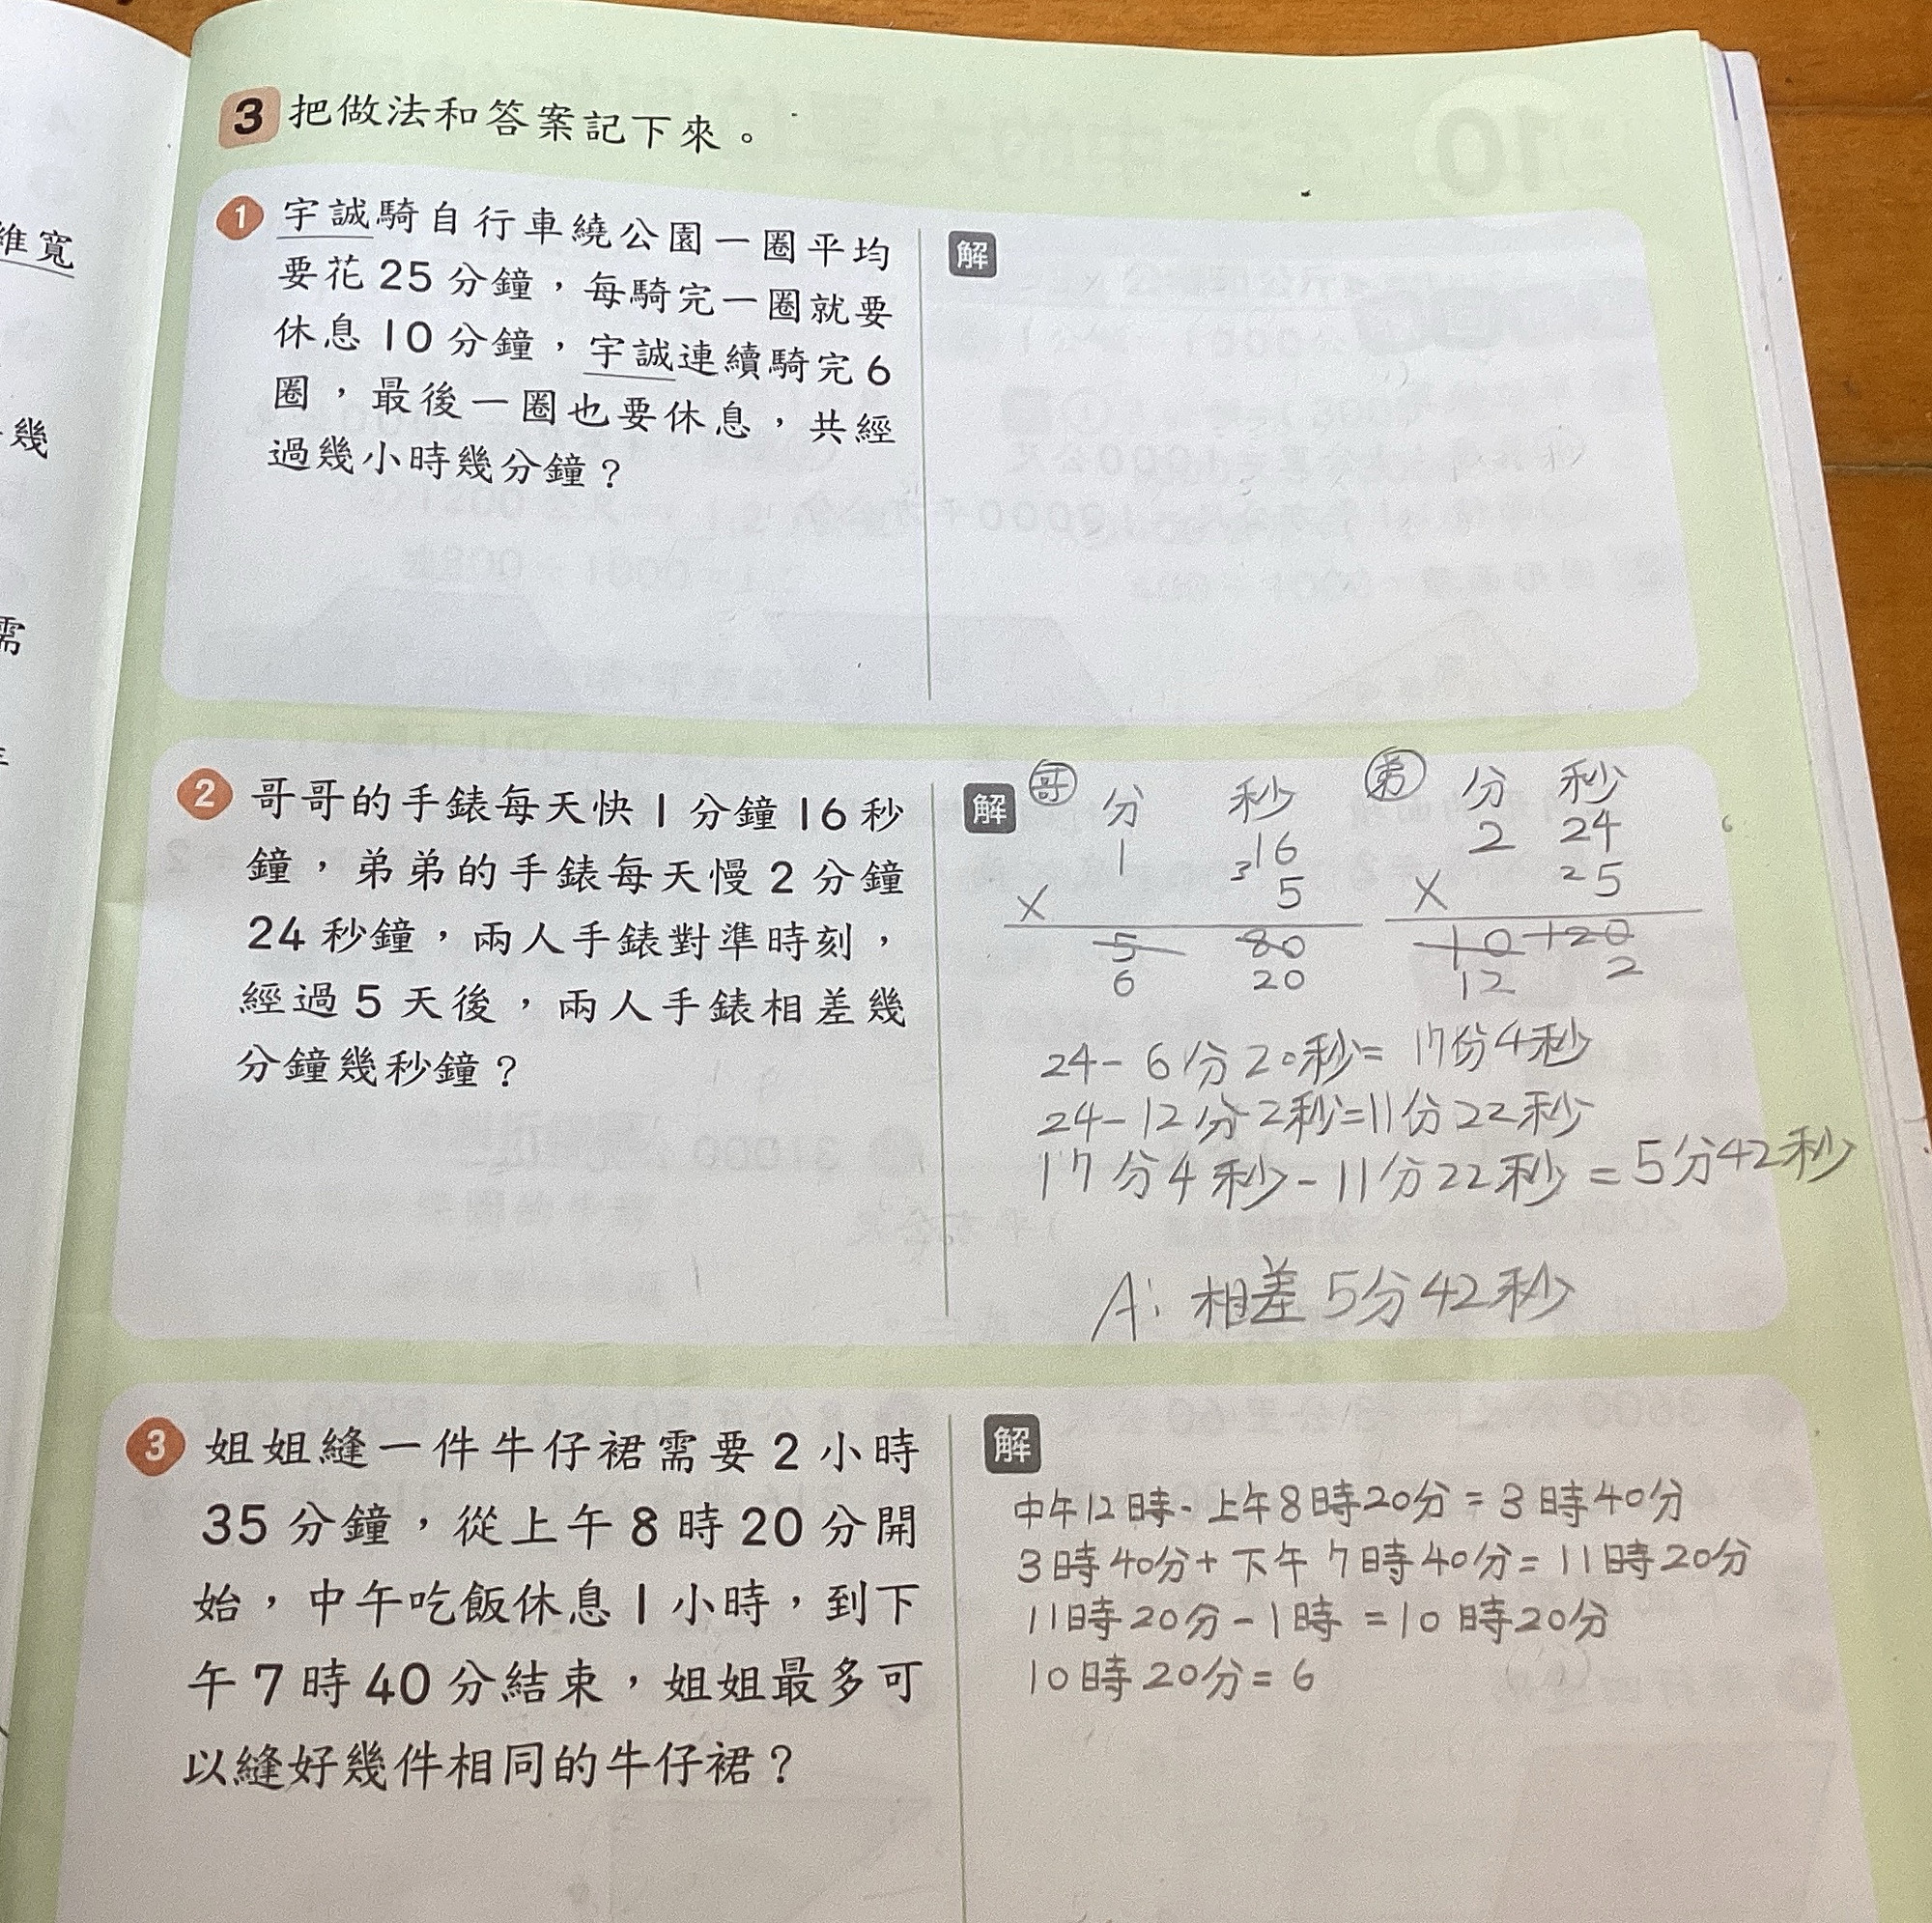 維寬
幾
需
3 把做法和答案記下來。
1 宇誠騎自行車繞公園一圈平均
要花25分鐘，每騎完一圈就要
休息10分鐘，宇誠連續騎完6
圈，最後一圈也要休息，共經
過幾小時幾分鐘？
解
2 哥哥的手錶每天快1分鐘16秒
鐘，弟弟的手錶每天慢2分鐘
24秒鐘，兩人手錶對準時刻，
經過5天後，兩人手錶相差幾
分鐘幾秒鐘？
解
哥 分 秒
1 16
× 3 5
5 80
6 20
弟 分 秒
2 24
× 2 5
10 120
12 2
24-6分20秒=17分4秒
24-12分2秒=11分22秒
17分4秒-11分22秒=5分42秒
A: 相差5分42秒
3 姐姐縫一件牛仔裙需要2小時
35分鐘，從上午8時20分開
始，中午吃飯休息1小時，到下
午7時40分結束，姐姐最多可
以縫好幾件相同的牛仔裙？
解
中午12時-上午8時20分=3時40分
3時40分+下午7時40分=11時20分
11時20分-1時=10時20分
10時20分=6